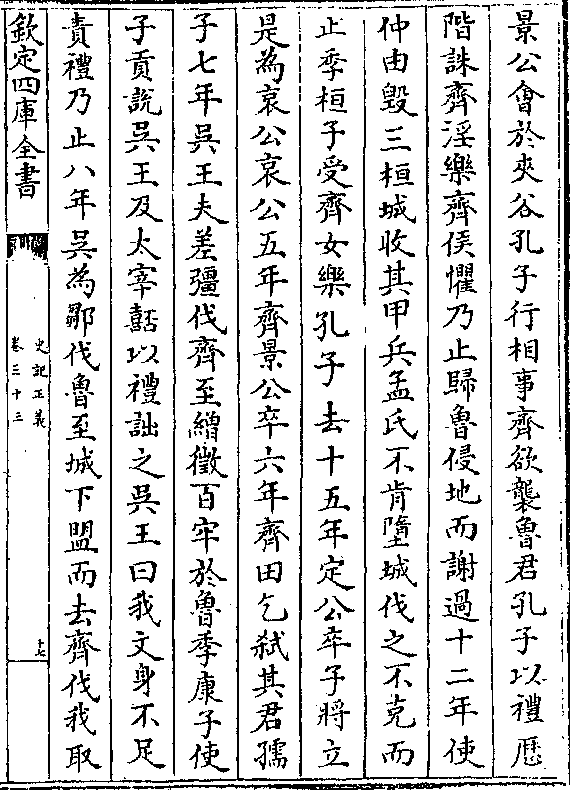 景公會於夾谷孔子行相事齊欲襲魯君孔子以禮歴
階誅齊淫樂齊侯懼乃止歸魯侵地而謝過十二年使
仲由毀三桓城收其甲兵孟氏不肯墮城伐之不克而
止季桓子受齊女樂孔子去十五年定公卒子將立
是為哀公哀公五年齊景公卒六年齊田乞弑其君孺
子七年吳王夫差彊伐齊至繒徵百牢於魯季康子使
子貢說吳王及太宰嚭以禮詘之吳王曰我文身不足
責禮乃止八年吳為鄒伐魯至城下盟而去齊伐我取
欽定四庫全書
史記正義
卷三十三
十七